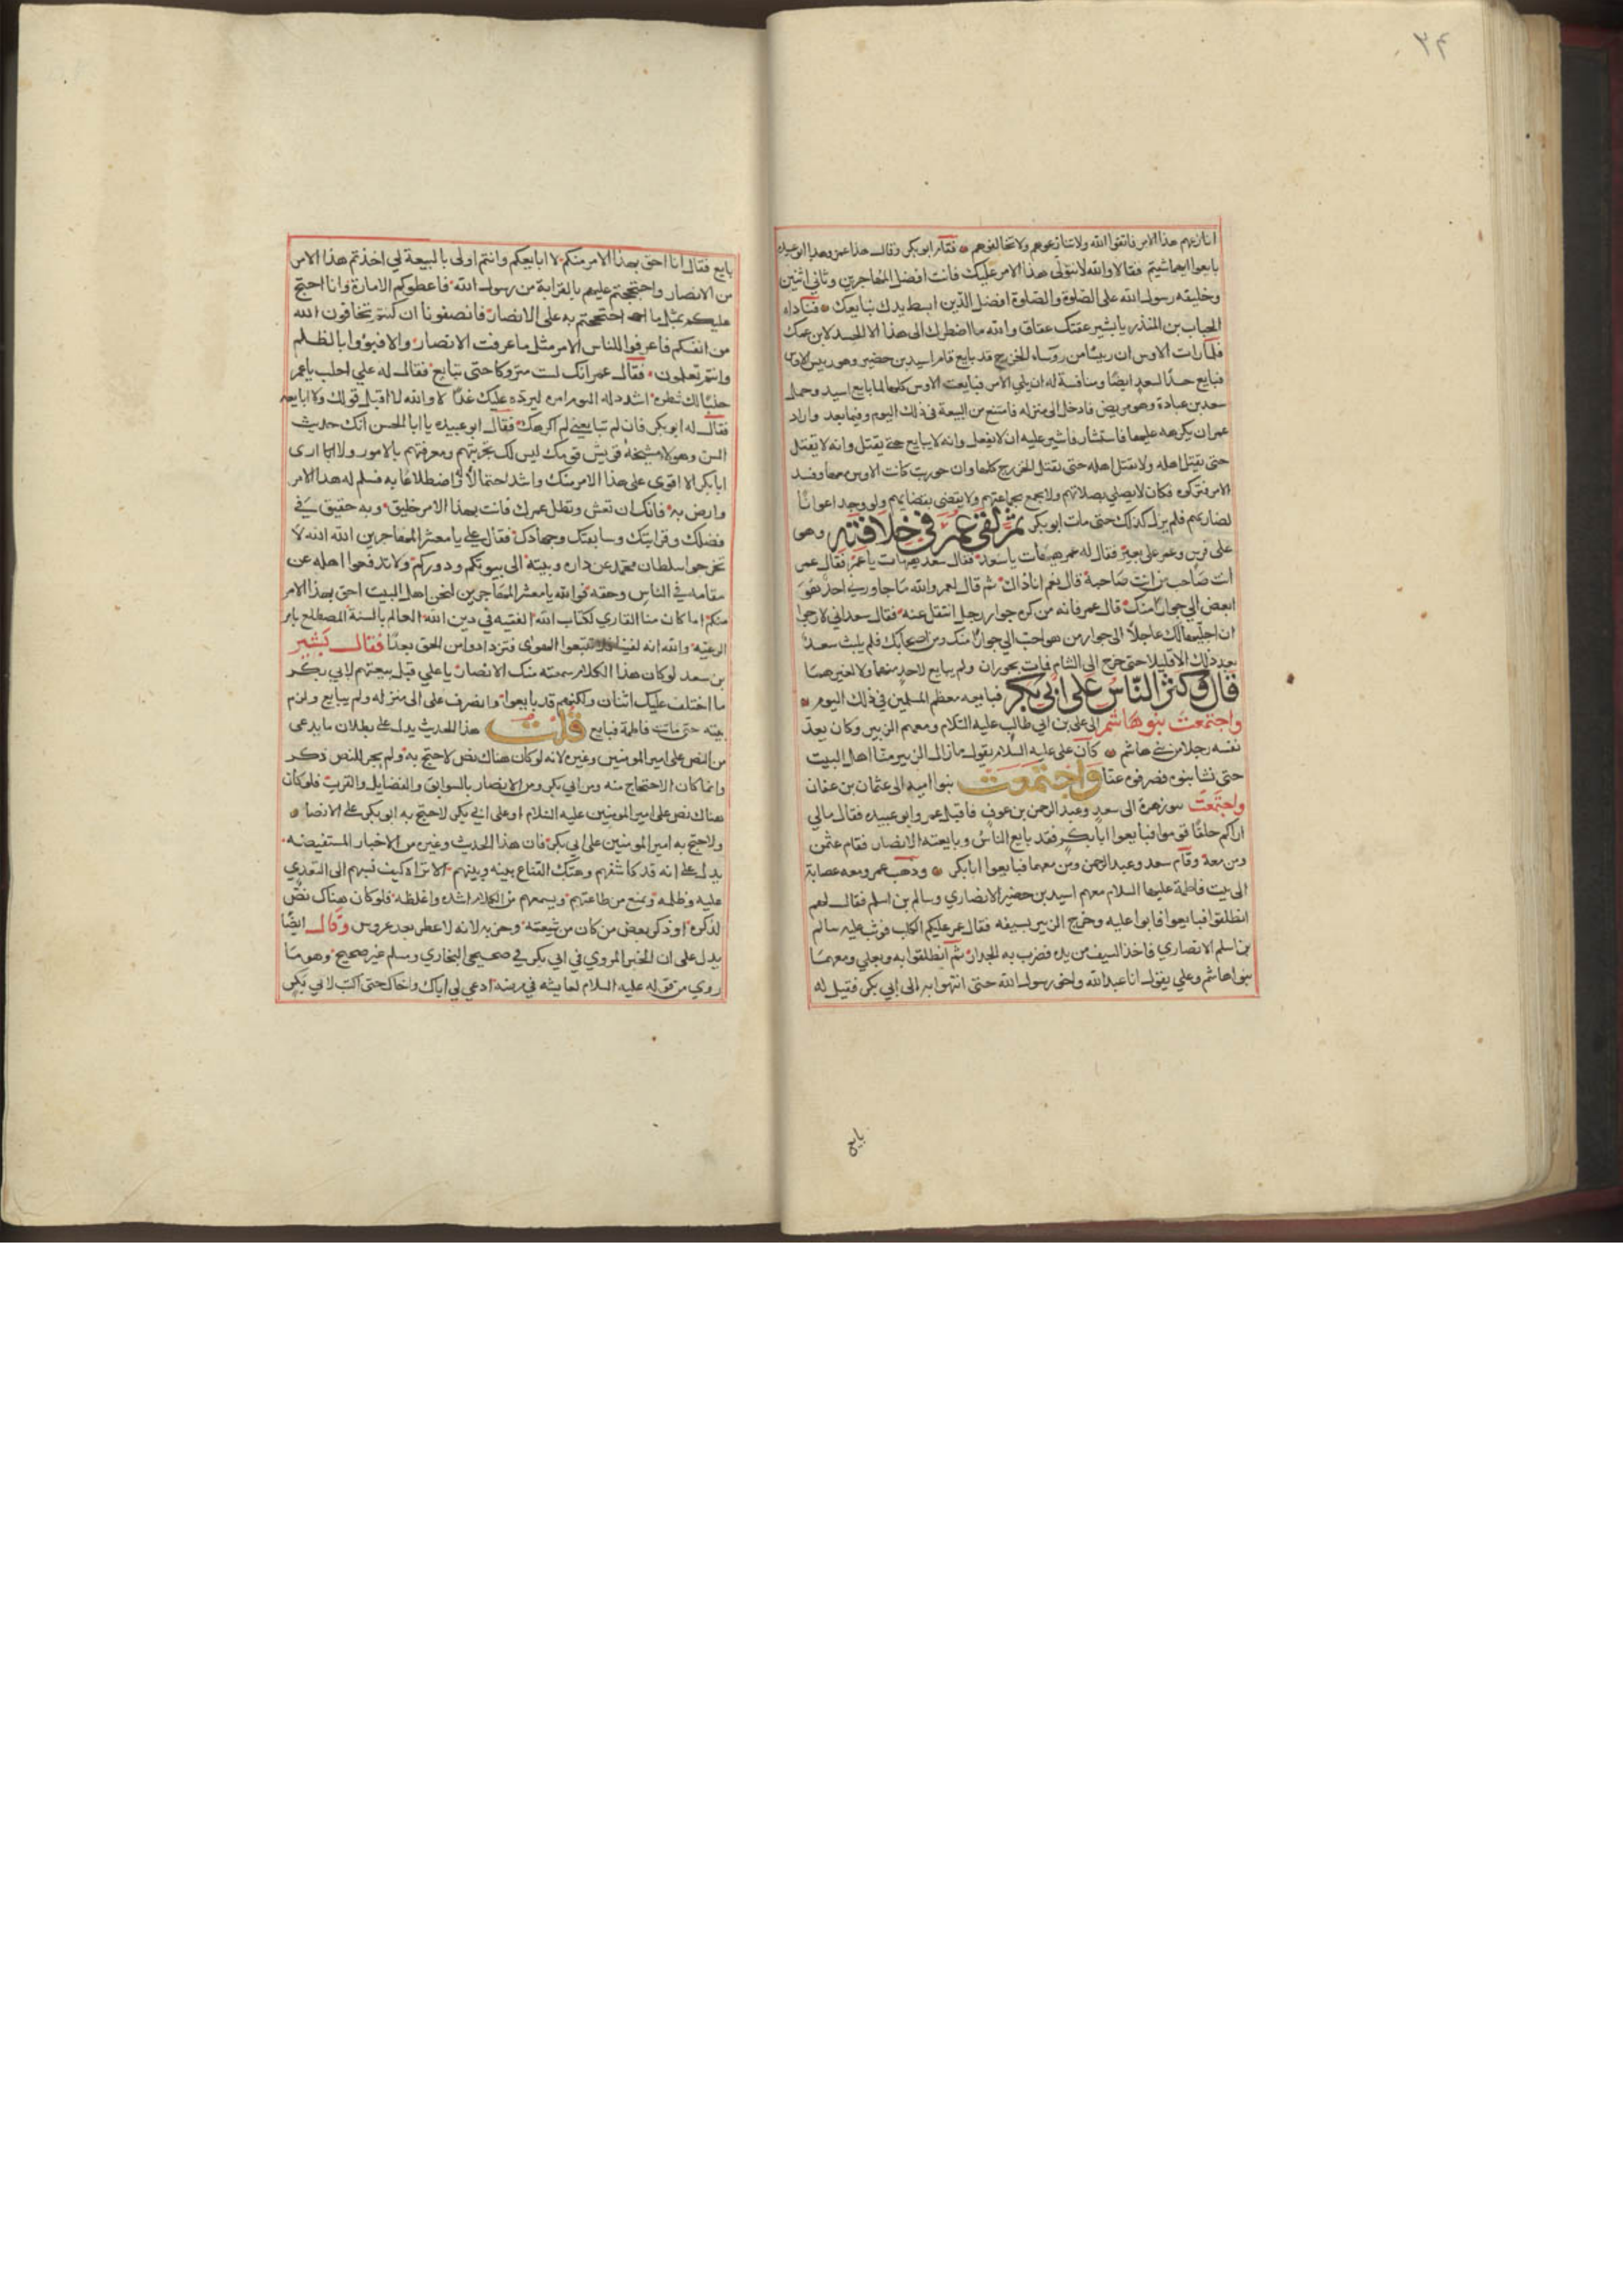 ٣٤
انازعهم هذا الامر فاتقوا الله ولا تنازعوهم ولا تخالفوهم فقام ابو بكر وقال هذا عمر وهذا ابو عبيدة
بايعوا ايهما شيتم فقالا والله لا نتولى هذا الامر عليك فانت افضل المهاجرين وثاني اثنين
وخليفه رسول الله على الصلوة والصلوة افضل الدين ابسط يدك نبايعك فناداه
الحباب بن المنذر يا بشير عقتك عقاق والله ما اضطرك الى هذا الا الحسد لابن عمك
فلما رات الاوس ان رئيسا من روساء الخزرج قد بايع قام اسيد بن حضير وهو رييس الاوس
فبايع حسدا لسعد ايضا ومنافسة له ان يلي الامر فبايعت الاوس كلها لما بايع اسيد وحمل
سعد بن عبادة وهو مريض فادخل الى منزله فامتنع من البيعة في ذلك اليوم وفيما بعد واراد
عمر ان يكرهه عليها فاستشار فاشير عليه ان لا يفعل وانه لا يبايع حتى يقتل وانه لا يقتل
حتى يقتل اهله ولا يقتل اهله حتى يقتل الخزرج كلها وان حوربت كانت الاوس معها وفسد
الامر فتركوه فكان لا يصلي بصلاتهم ولا يجمع بجماعتهم ولا يقضي بقضايهم ولو وجد اعوانا
لضاربهم فلم يزل كذلك حتى مات ابو بكر ثم لقى عمر في خلافته وهو
على فرس وعمر على بعير فقال له عمر هيهات يا سعد فقال سعد هيهات يا عمر فقال عمر
انت صاحب من انت صاحبه قال نعم انا ذاك ثم قال لعمر والله ما جاورني احد هو
ابغض الي جوارا منك قال عمر فانه من كره جوار رجل انتقل عنه فقال سعد اني لارجوا
ان اخليها لك عاجلا الى جوار من هو احب الي جوارا منك ومن اصحابك فلم يلبث سعد
بعد ذلك الا قليلا حتى خرج الى الشام فمات بحوران ولم يبايع لاحد منهما ولا لغيرهما
قال وكثر الناس على ابي بكر فبايعه معظم المسلمين في ذلك اليوم
واجتمعت بنو هاشم الى على بن ابي طالب عليه السلام ومعهم الزبير وكان يعد
نفسه رجلا من بني هاشم كان على عليه السلام يقول ما زال الزبير منا اهل البيت
حتى نشا بنوه فصرفوه عنا واجتمعت بنوا امية الى عثمان بن عفان
واجتمعت بنو زهرة الى سعد وعبد الرحمن بن عوف فاقبل عمر وابو عبيده فقال مالي
اراكم حلقا قوموا فبايعوا ابا بكر فقد بايع الناس وبايعته الانصار فقام عثمن
ومن معه وقام سعد وعبد الرحمن ومن معهما فبايعوا ابا بكر وذهب عمر ومعه عصابة
الى بيت فاطمة عليها السلام معهم اسيد بن حضير الانصاري وسالم بن اسلم فقال لهم
انطلقوا فبايعوا فابوا عليه وخرج الزبير بسيفه فقال عمر عليكم الكلب فوثب عليه سالم
بن اسلم الانصاري فاخذ السيف من يده فضرب به الجدار ثم انطلقوا به وبعلي ومعهما
بنوا هاشم وعلي يقول انا عبد الله واخو رسول الله حتى انتهوا به الى ابي بكر فقيل له
بايع
بايع فقال انا احق بهذا الامر منكم لا ابايعكم وانتم اولى بالبيعة لي اخذتم هذا الامر
من الانصار واحتججتم عليهم بالقرابة من رسول الله فاعطوكم الامارة وانا احتج
عليكم بمثل ما احتججتم به على الانصار فانصفونا ان كنتم تخافون الله
من انفسكم فاعرفوا للناس الامر مثل ما عرفت الانصار والا فبوؤا بالظلم
وانتم تعلمون فقال عمر انك لست متروكا حتى تبايع فقال له علي احلب يا عمر
حلبا لك شطره اشدد له اليوم امره ليرده عليك غدا لا والله لا اقبل قولك ولا ابايعه
فقال له ابو بكر فان لم تبايعني لم اكرهك فقال ابو عبيده يا ابا الحسن انك حديث
السن وهولاء مشيخة قريش قومك ليس لك تجربتهم ومعرفتهم بالامور ولا ارى
ابا بكر الا اقوى على هذا الامر منك واشد احتمالا واضطلاعا به فسلم له هذا الامر
وارض به فانك ان تعش ويطل عمرك فانت بهذا الامر خليق وبه حقيق في
فضلك وقرابتك وسابقتك وجهادك فقال علي يا معشر المهاجرين الله الله لا
تخرجوا سلطان محمد عن داره وبيته الى بيوتكم ودوركم ولا تدفعوا اهله عن
مقامه في الناس وحقه فوالله يا معشر المهاجرين لنحن اهل البيت احق بهذا الامر
منكم اما كان منا القاري لكتاب الله الفقيه في دين الله العالم بالسنة المضطلع بامر
الرعيه والله انه لفينا فلا تتبعوا الهوى فتزدادوا من الحق بعدا فقال بشير
بن سعد لو كان هذا الكلام سمعته منك الانصار يا علي قبل بيعتهم لابي بكر
ما اختلف عليك اثنان ولكنهم قد بايعوا وانصرف على الى منزله ولم يبايع ولزم
بيته حتى ماتت فاطمة فبايع قلت هذا الحديث يدل على بطلان ما يدعى
من النص على امير المومنين وغيره لانه لو كان هناك نص لاحتج به ولم يجر للنص ذكر
وانما كان الاحتجاج منه ومن ابي بكر ومن الانصار بالسوابق والفضايل والقرب فلو كان
هناك نص على امير المومنين عليه السلام او على ابي بكر لاحتج به ابو بكر على الانصار
ولاحتج به امير المومنين على ابي بكر فان هذا الحديث وغيره من الاخبار المستفيضه
يدل على انه قد كاشفهم وهتك القناع بينه وبينهم الا تراه كيف نسبهم الى التعدي
عليه وظلمه وتمنع من طاعتهم ويسمعهم من الكلام اشده واغلظه فلو كان هناك نص
لذكره او ذكره بعض من كان من شيعته وحزبه لانه لا عطر بعد عروس وقال ايضا
يدل على ان الخبر المروي في ابي بكر في صحيحي البخاري ومسلم غير صحيح وهو ما
روي من قوله عليه السلام لعايشه في مرضه ادعي لي اباك واخاك حتى اكتب لابي بكر